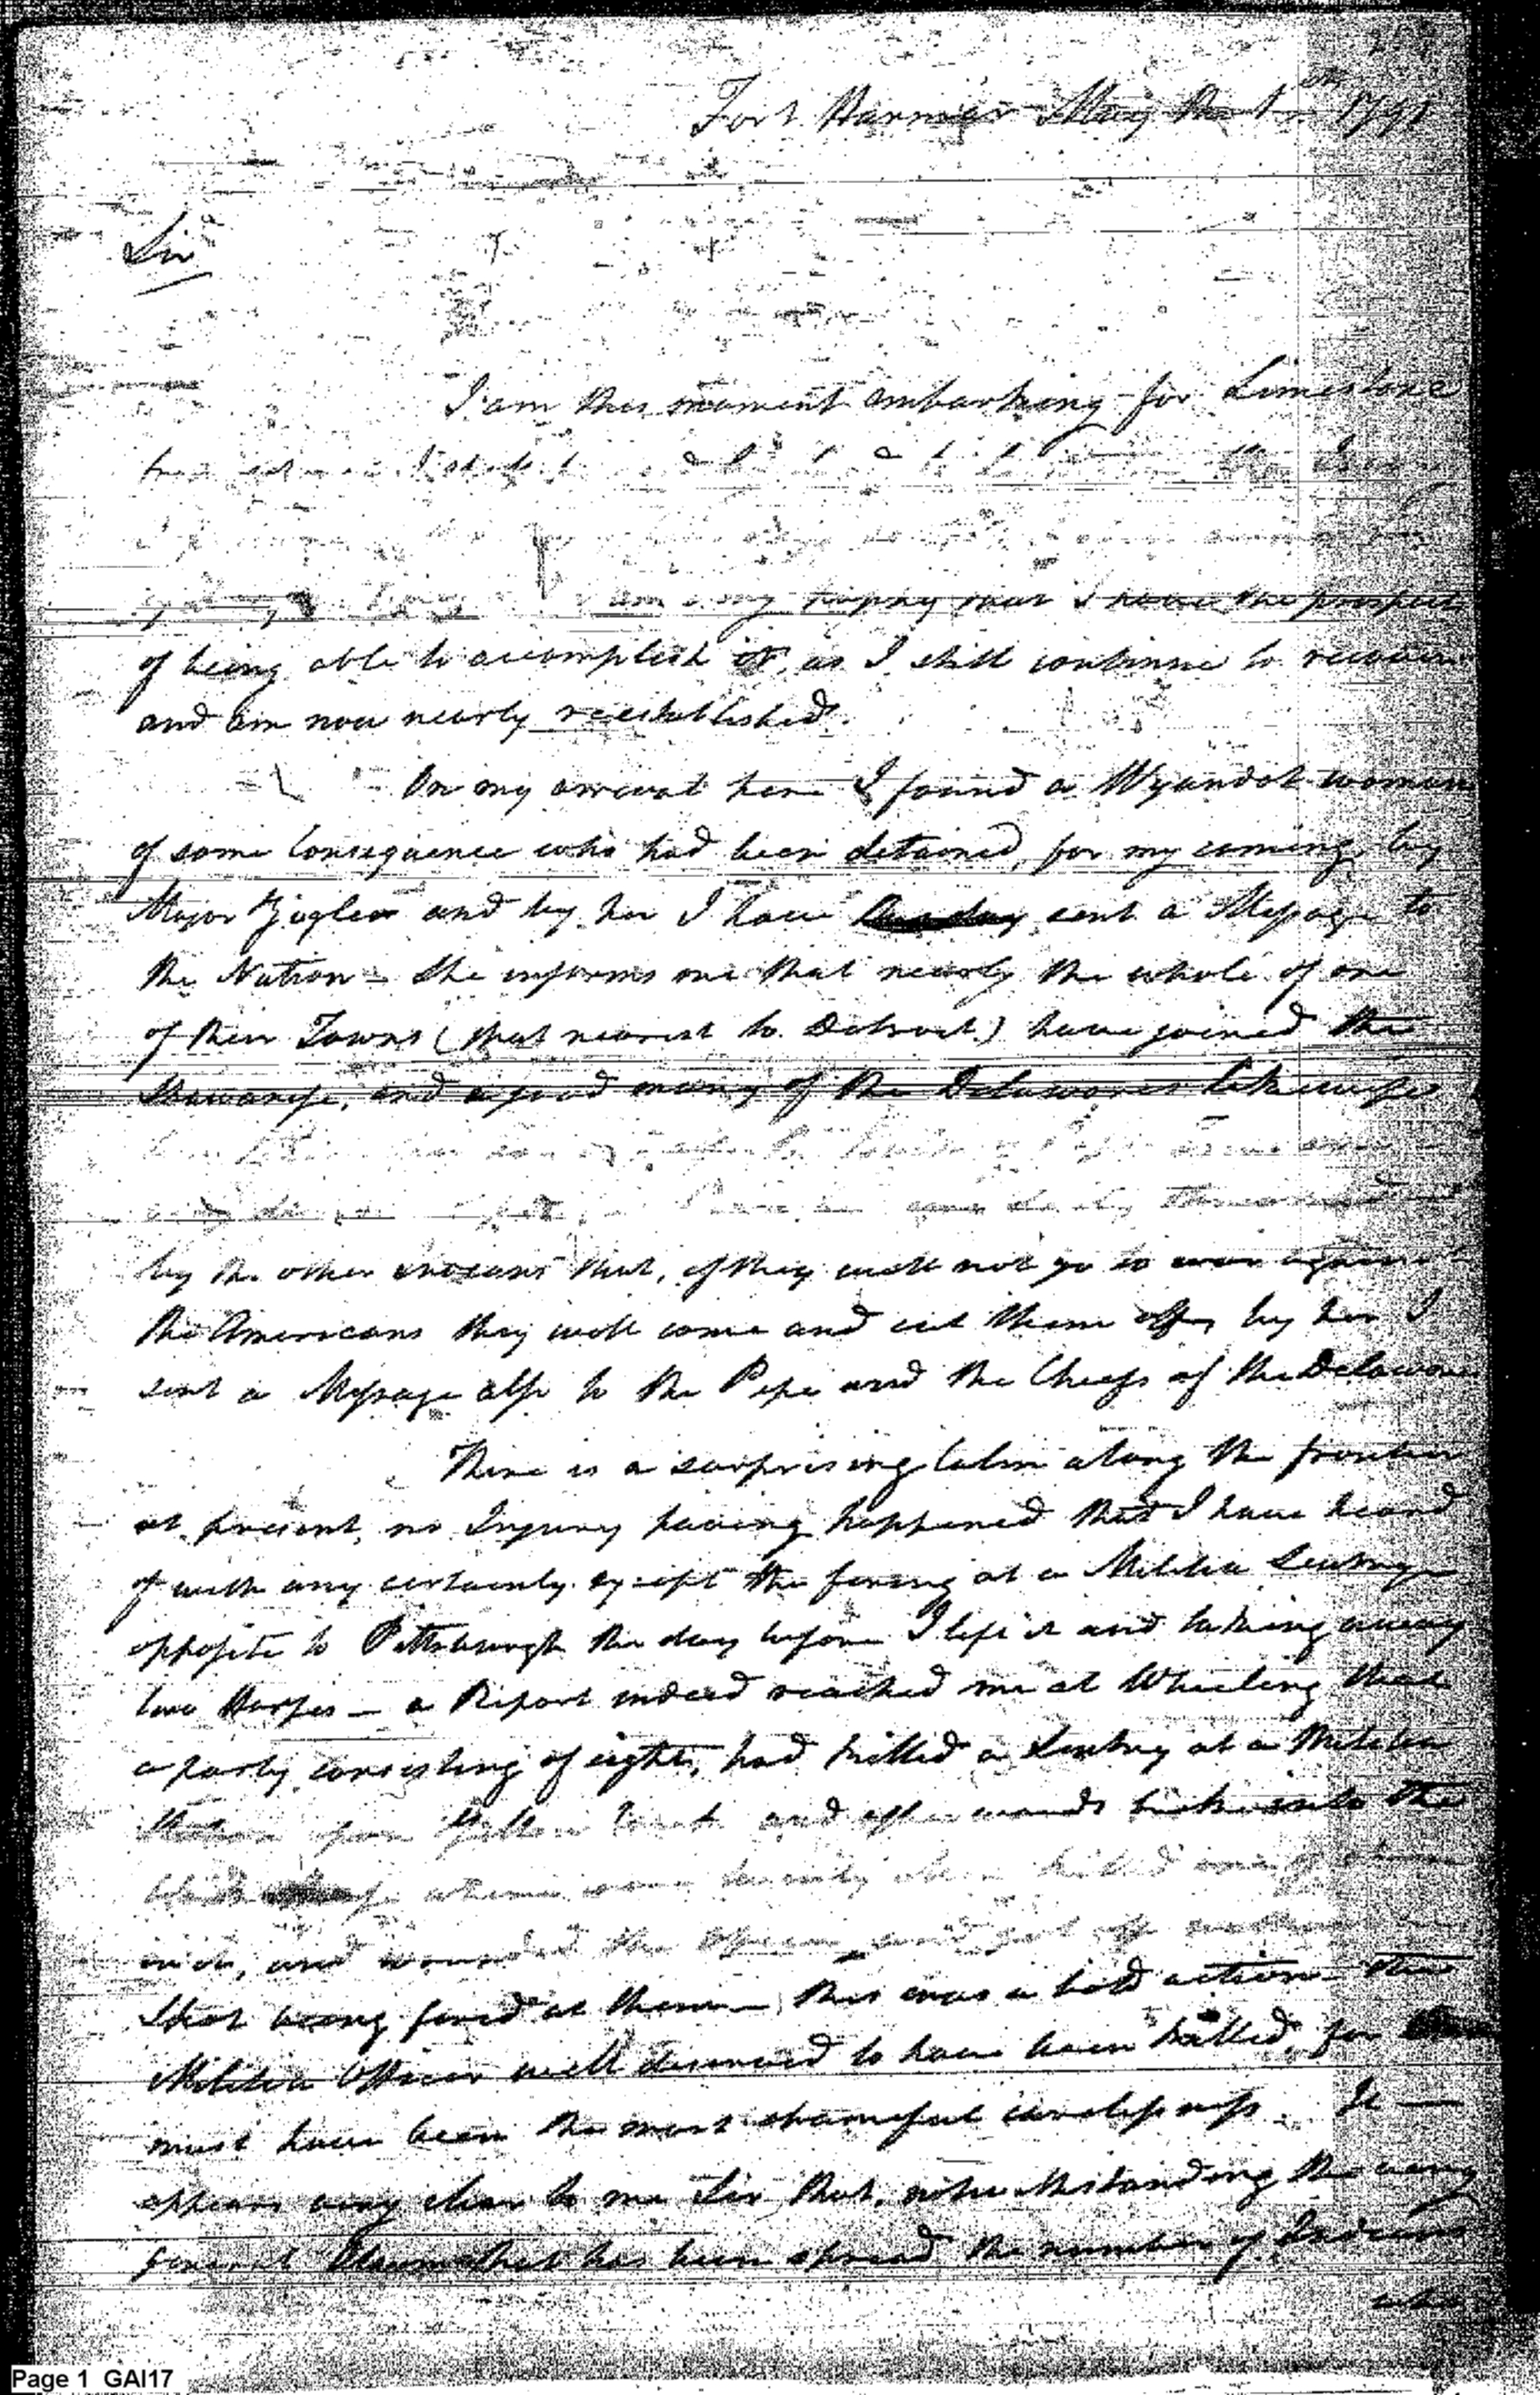 Fort Harmar May the 1st 1791
Sir
I am this moment embarking for Limestone
happy that I have the prospect
of being able to accomplish it, as I still continue to recover
and am now nearly reestablished.
On my arrival here I found a Wyandot woman
of some Consequence who had been detained, for my coming, by
Major Zigler and by her I have sent a Message to
the Nation – She informs me that nearly the whole of one
of their Towns (that nearest to Detroit) have joined the
Shawanese, and a good many of the Delawares likewise
threatened
by the other Indians that, if they will not go to war against
the Americans they will come and cut them off, by her I
sent a Message also to the Pipe and the Chiefs of the Delawares
There is a surprising Calm along the frontier
at present, no Injury having happened that I have heard
of with any certainty except the firing at a Militia Sentry
opposite to Pittsburgh the day before I left it and taking away
two Horses – a Report indeed reached me at Wheeling that
a party consisting of eight, had killed a Sentry at a Militia
Station upon Yellow Creek and afterwards broke into the
Block where were twenty Men killed one of them
and wounded the Officer and got off without
Shot being fired at them – this was a bold action – the
Militia Officer well deserved to have been killed, for
must have been the most shameful carelessness. It –
appears very clear to me Sir, that, notwithstanding the very
general Alarm that has been spread the number of Indians
who
Page 1 GAI17